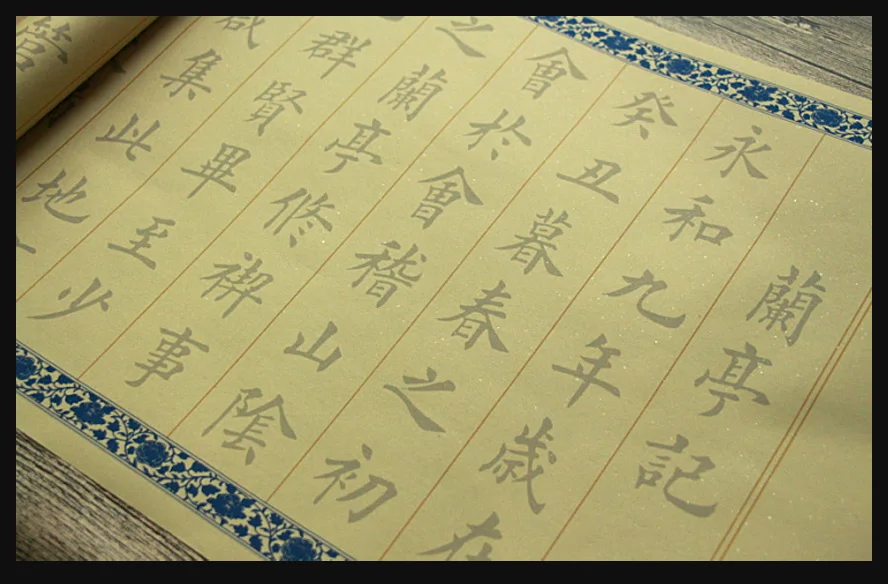 蘭亭記
永和九年歲在
癸丑暮春之初
會於會稽山陰
之蘭亭修禊事
群賢畢至少
咸集此地
管